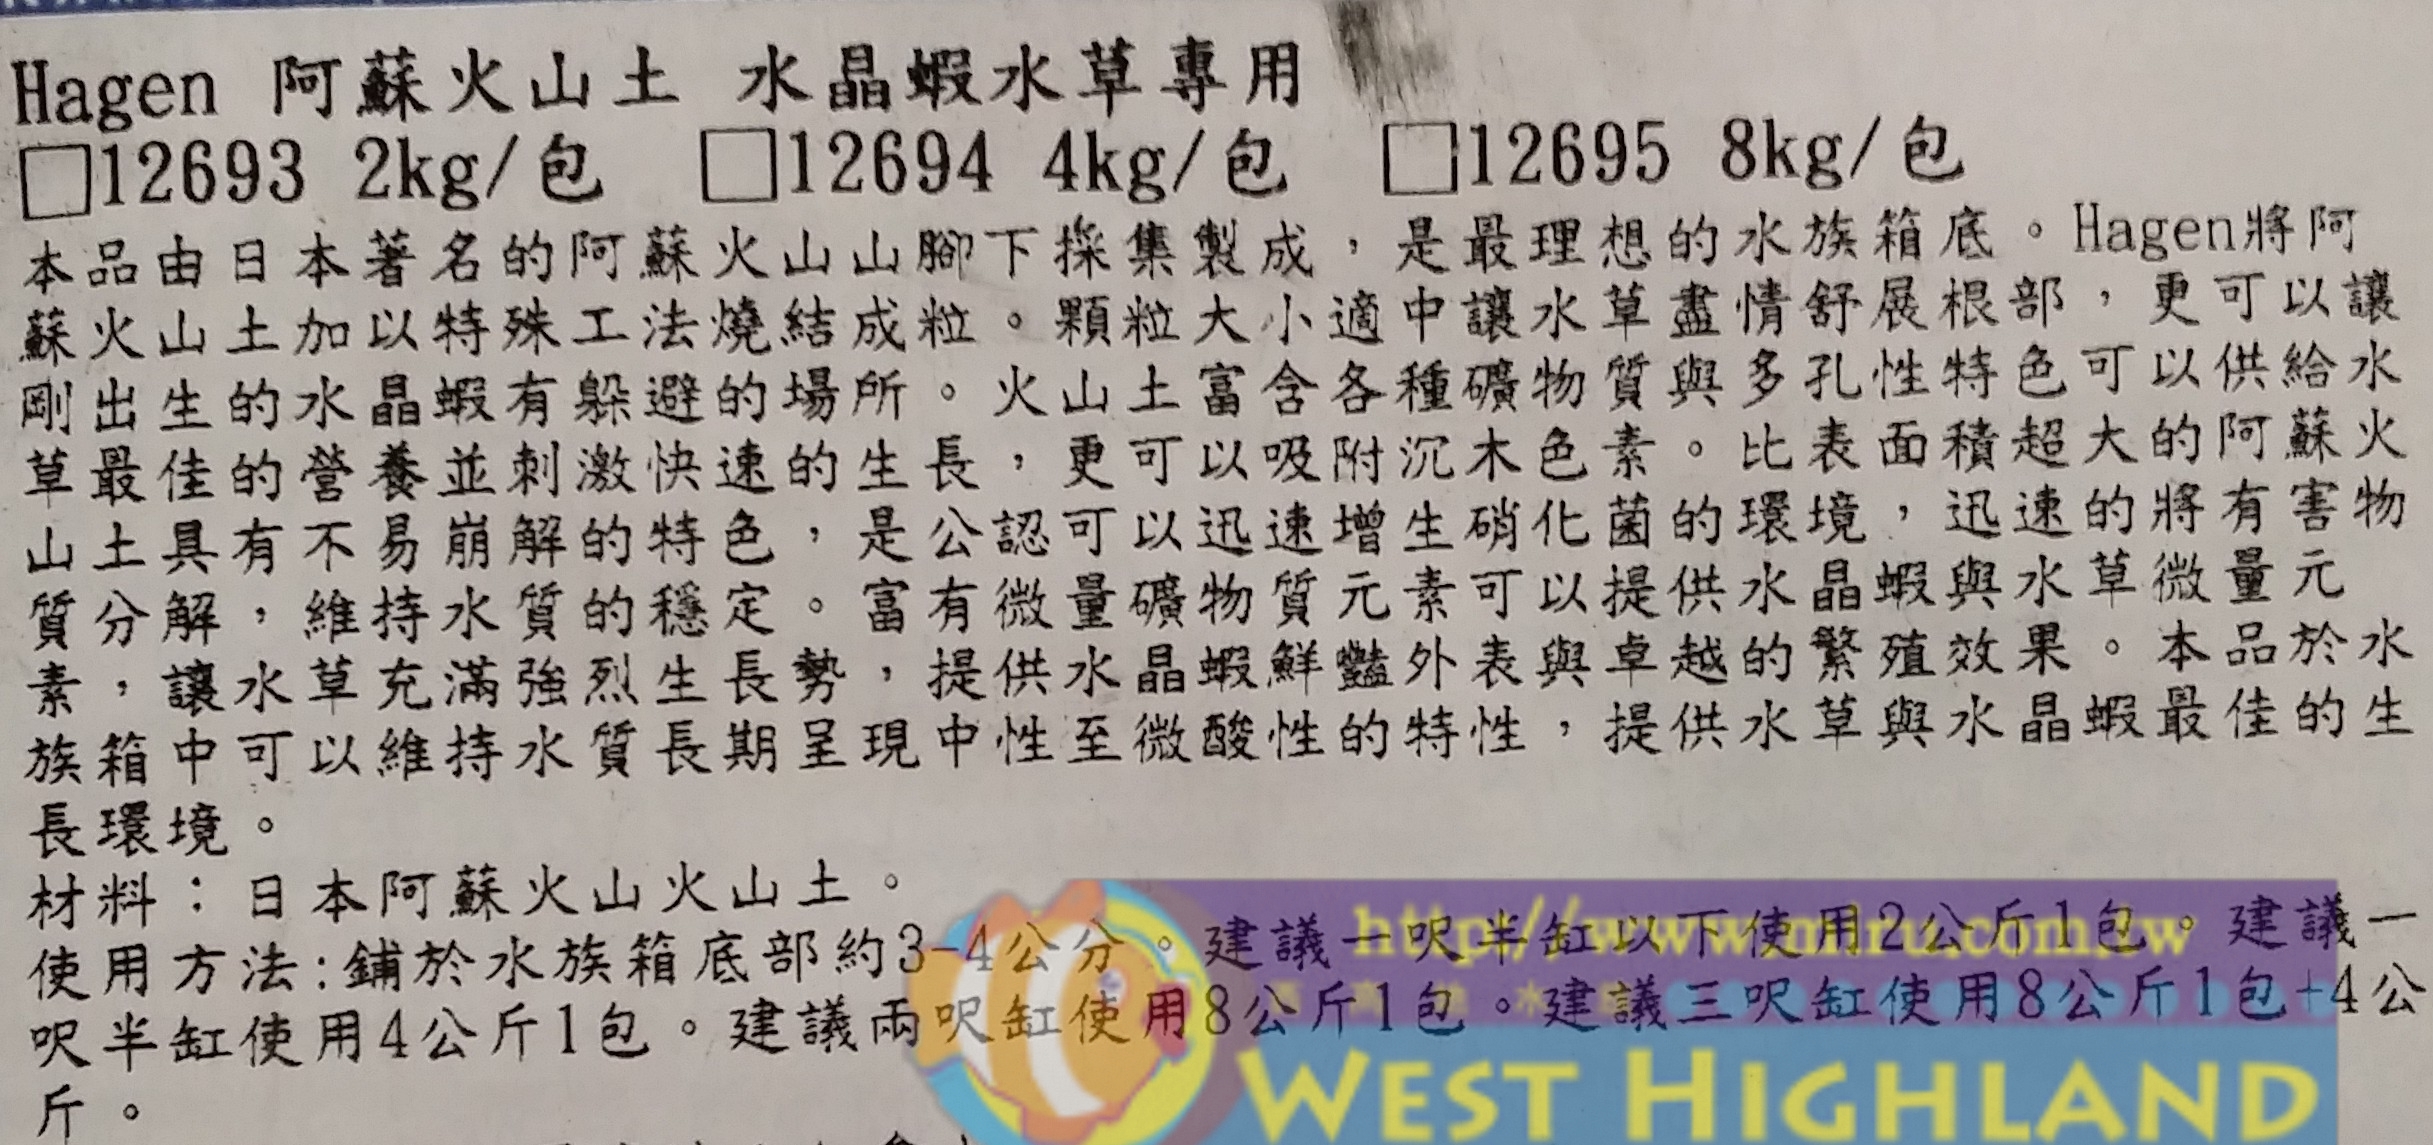 Hagen 阿蘇火山土 水晶蝦水草專用
□12693 2kg/包 □12694 4kg/包 □12695 8kg/包
本品由日本著名的阿蘇火山山腳下採集製成，是最理想的水族箱底。Hagen將阿
蘇火山土加以特殊工法燒結成粒。顆粒大小適中讓水草盡情舒展根部，更可以讓
剛出生的水晶蝦有躲避的場所。火山土富含各種礦物質與多孔性特色可以供給水
草最佳的營養並刺激快速的生長，更可以吸附沉木色素。比表面積超大的阿蘇火
山土具有不易崩解的特色，是公認可以迅速增生硝化菌的環境，迅速的將有害物
質分解，維持水質的穩定。富有微量礦物質元素可以提供水晶蝦與水草微量元
素，讓水草充滿強烈生長勢，提供水晶蝦鮮豔外表與卓越的繁殖效果。本品於水
族箱中可以維持水質長期呈現中性至微酸性的特性，提供水草與水晶蝦最佳的生
長環境。
材料：日本阿蘇火山火山土。
使用方法:鋪於水族箱底部約3-4公分。建議一呎半缸以下使用2公斤1包。建議一
呎半缸使用4公斤1包。建議兩呎缸使用8公斤1包。建議三呎缸使用8公斤1包+4公
斤。
WEST HIGHLAND